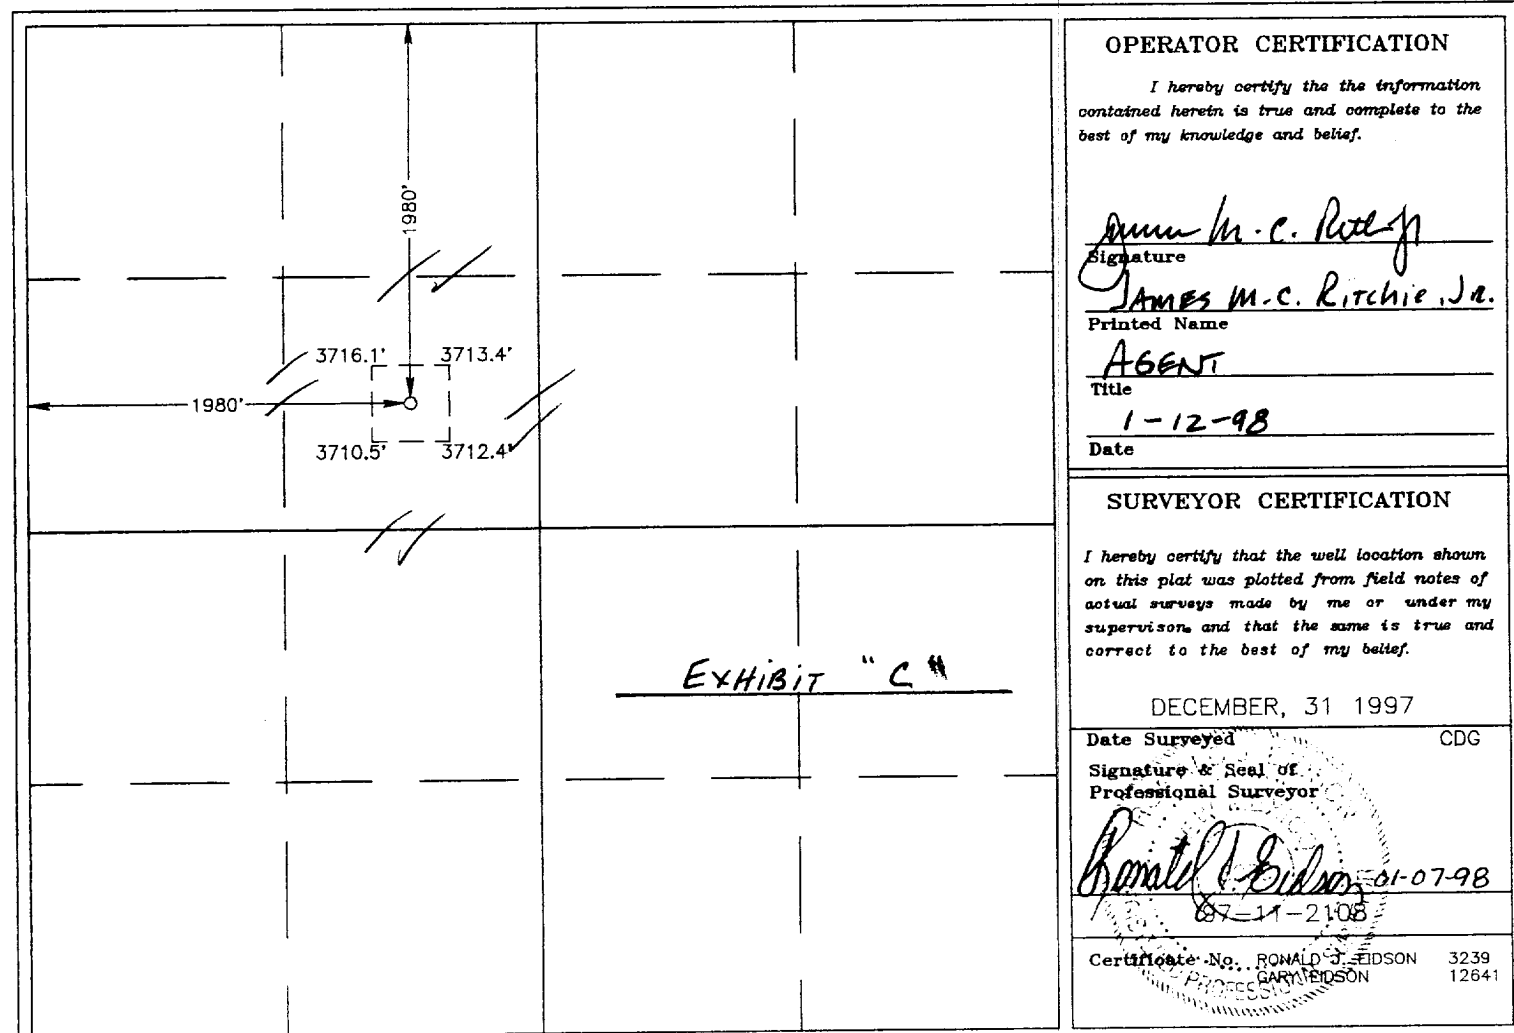 1980'
3716.1' 3713.4'
1980'
3710.5' 3712.4'
EXHIBIT "C"
OPERATOR CERTIFICATION
I hereby certify the the information
contained herein is true and complete to the
best of my knowledge and belief.
Signature
JAMES M.C. RITCHIE, JR.
Printed Name
AGENT
Title
1-12-98
Date
SURVEYOR CERTIFICATION
I hereby certify that the well location shown
on this plat was plotted from field notes of
actual surveys made by me or under my
supervison, and that the same is true and
correct to the best of my belief.
DECEMBER, 31 1997
Date Surveyed CDG
Signature & Seal of
Professional Surveyor
Ronald J. Eidson 01-07-98
97-11-2108
Certificate No. RONALD J. EIDSON 3239
GARY EIDSON 12641